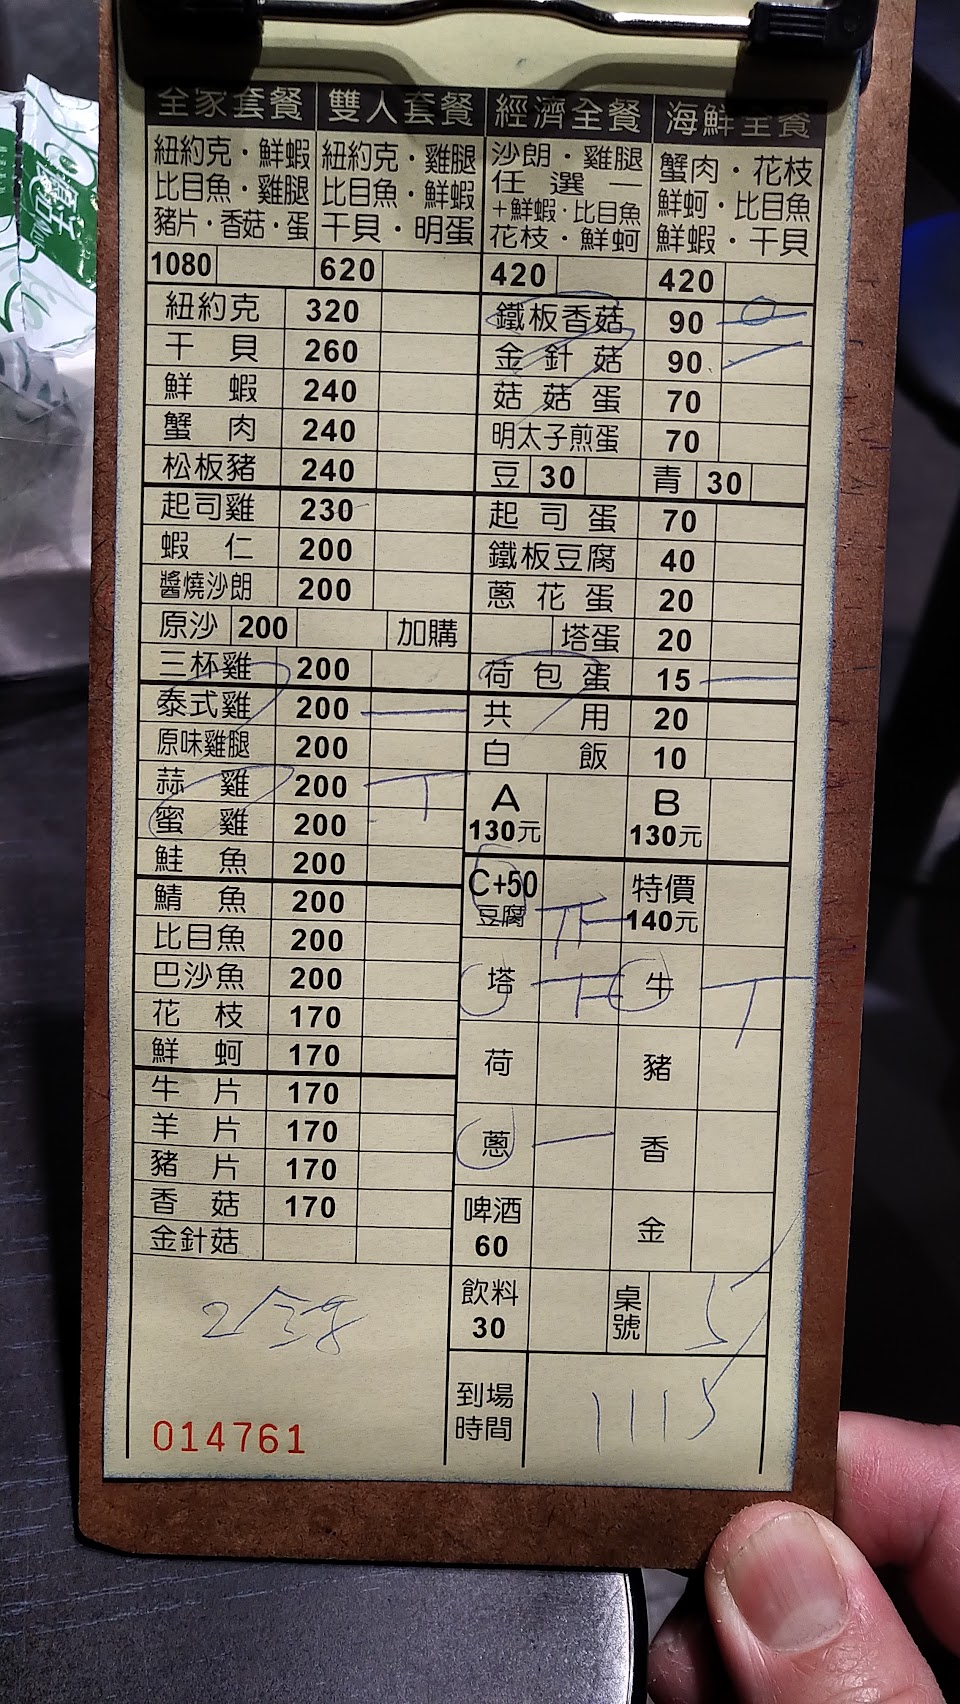 全家套餐 雙人套餐 經濟全餐 海鮮全餐
紐約克・鮮蝦
比目魚・雞腿
豬片・香菇・蛋
紐約克・雞腿
比目魚・鮮蝦
干貝・明蛋
沙朗・雞腿
任選一
+鮮蝦・比目魚
花枝・鮮蚵
蟹肉・花枝
鮮蚵・比目魚
鮮蝦・干貝
1080 620 420 420
紐約克 320
干貝 260
鮮蝦 240
蟹肉 240
松板豬 240
起司雞 230
蝦仁 200
醬燒沙朗 200
原沙 200 加購
三杯雞 200
泰式雞 200 一
原味雞腿 200
蒜雞 200 T
蜜雞 200
鮭魚 200
鯖魚 200
比目魚 200
巴沙魚 200
花枝 170
鮮蚵 170
牛片 170
羊片 170
豬片 170
香菇 170
金針菇
014761
鐵板香菇 90
金針菇 90 一
菇菇蛋 70
明太子煎蛋 70
豆 30 青 30
起司蛋 70
鐵板豆腐 40
蔥花蛋 20
塔蛋 20
荷包蛋 15 一
共用 20
白飯 10
A
130元
B
130元
C+50
豆腐
特價
140元
塔 牛 T
荷 豬
蔥 一 香
啤酒
60
金
飲料
30
桌號 5
到場
時間
1115